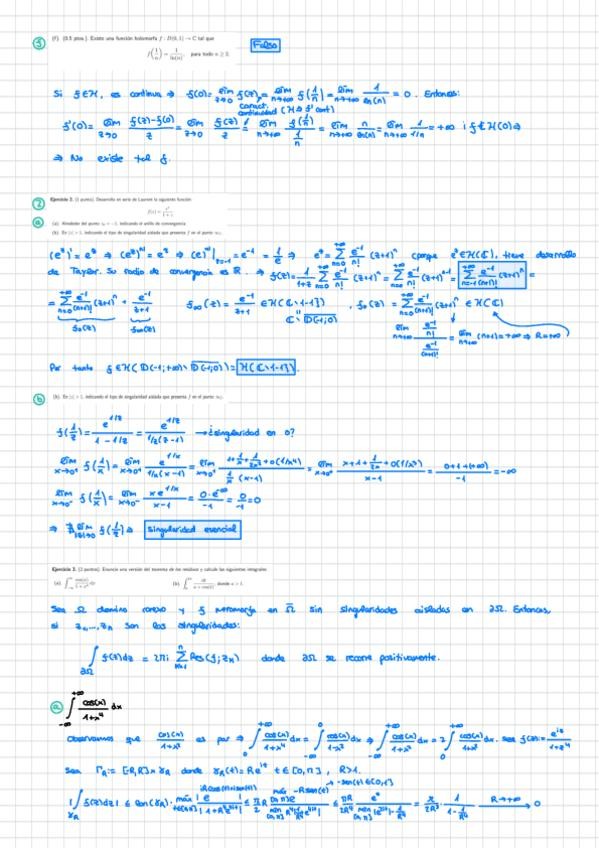 (f). (0.5 ptos.). Existe una función holomorfa f : D(0,1) → C tal que
f(1/n) = 1/ln(n), para todo n ≥ 2.
Falso
Si f∈H, es continua ⇒ f(0)= lím z→0 f(z) = lím n→+∞ f(1/n) = lím n→+∞ 1/ln(n) = 0. Entonces:
caract.
continuidad (H⇒f cont)
f'(0)= lím z→0 (f(z)-f(0))/z = lím z→0 f(z)/z = lím n→+∞ f(1/n)/(1/n) = lím n→+∞ n/ln(n) = lím n→+∞ 1/(1/n) = +∞ ¡ f∉H(0) ⇒
⇒ No existe tal f.
2
Ejercicio 2. (2 puntos). Desarrolla en serie de Laurent la siguiente función:
a
(a). Alrededor del punto z₀ = −1, indicando el anillo de convergencia
(b). En |z| > 1, indicando el tipo de singularidad aislada que presenta f en el punto
(e^z)' = e^z ⇒ (e^z)^(n) = e^z ⇒ (e^z)^(n)|z=-1 = e^-1 = 1/e ⇒ e^z = Σ n=0 +∞ e^-1/n! (z+1)^n (porque e^z∈H(C), tiene desarrollo
de Taylor. Su radio de convergencia es R. ⇒ f(z) = 1/(1+z) Σ n=0 +∞ e^-1/n! (z+1)^n = Σ n=0 +∞ e^-1/n! (z+1)^(n-1) = Σ n=-1 +∞ e^-1/(n+1)! (z+1)^n =
= Σ n=0 +∞ e^-1/(n+1)! (z+1)^n + e^-1/(z+1) f∞(z) = e^-1/(z+1) ∈H(C∖{-1}) , f₀(z) = Σ n=0 +∞ e^-1/(n+1)! (z+1)^n ∈ H(C)
f₀(z) f∞(z) C∖D(-1;0)
lím n→+∞ (e^-1/n!)/(e^-1/(n+1)!) = lím n→+∞ (n+1) = +∞ ⇒ R=+∞
Por tanto f∈H(D(-1;+∞)∖D(-1;0)) = H(C∖{-1}).
b
(b). En |z| > 1, indicando el tipo de singularidad aislada que presenta f en el punto
f(1/z) = e^(1/z)/(1-1/z) = e^(1/z)/(1/z(z-1)) → ¿singularidad en 0?
lím x→0+ f(1/x) = lím x→0+ e^(1/x)/(1/x(x-1)) = lím x→0+ (1+1/x+1/2x²+o(1/x²))/(1/x (x-1)) = lím x→0+ (x+1+1/2x+o(1/x²))/(x-1) = (0+1+(+∞))/-1 = -∞
lím x→0- f(1/x) = lím x→0- x e^(1/x)/(x-1) = 0·e^-∞/-1 = 0/-1 = 0
⇒ ∄ lím |z|→0 f(1/z) ⇒ Singularidad esencial
Ejercicio 3. (2 puntos). Enuncia una versión del teorema de los residuos y calcula las siguientes integrales
(a). (b). donde a > 1.
Sea Ω dominio conexo y f meromorfa en Ω sin singularidades aisladas en ∂Ω. Entonces,
si z₁,...,zₙ son las singularidades:
∫∂Ω f(z)dz = 2πi Σ k=1 n Res(f; zₖ) donde ∂Ω se recorre positivamente.
a ∫ -∞ +∞ cos(x)/(1+x⁴) dx
Observamos que cos(x)/(1+x⁴) es par ⇒ ∫ 0 +∞ cos(x)/(1+x⁴) dx = ∫ -∞ 0 cos(x)/(1+x⁴) dx ⇒ ∫ -∞ +∞ cos(x)/(1+x⁴) dx = 2∫ 0 +∞ cos(x)/(1+x⁴) dx. Sea f(z) = e^(iz)/(1+z⁴)
Sea Γ_R := [-R,R] × γ_R donde γ_R(t) = Re^(it) t∈[0,π], R>1.